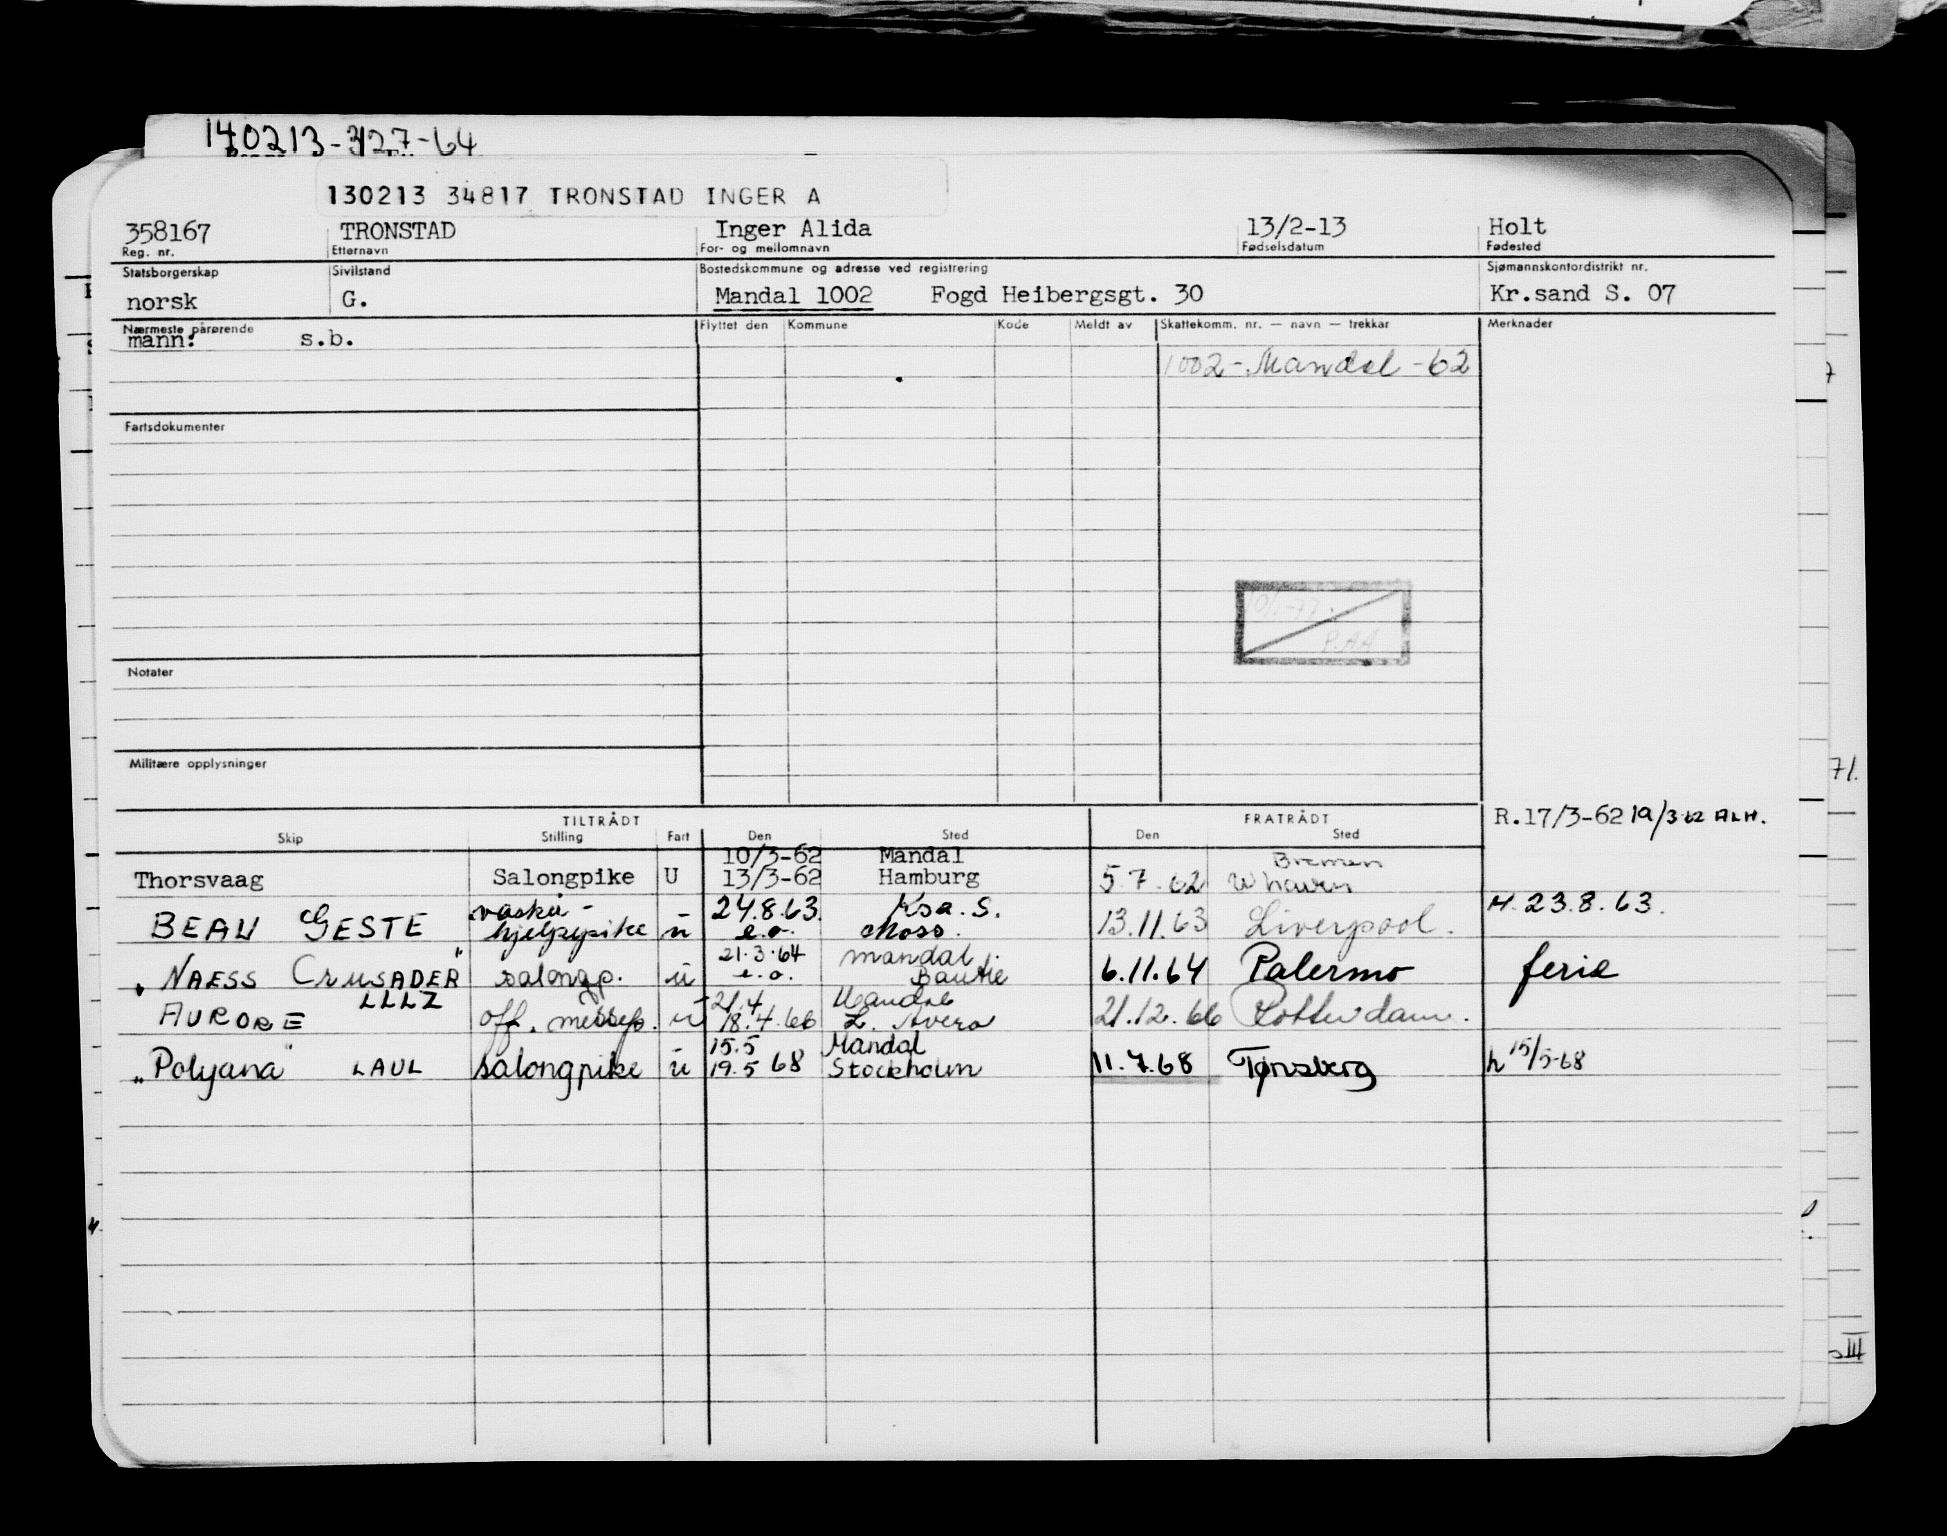 140213-3127-64
130213 34817 TRONSTAD INGER A
358167 TRONSTAD Inger Alida 13/2-13 Holt
Reg. nr. Etternavn For- og mellomnavn Fødselsdatum Fødested
Statsborgerskap Sivilstand Bostedskommune og adresse ved registrering Sjømannskontordistrikt nr.
norsk G. Mandal 1002 Fogd Heibergsgt. 30 Kr.sand S. 07
Nærmeste pårørende Flyttet den Kommune Kode Meldt av Skattekomm. nr. — navn — trekkår Merknader
mann: s.b.
1002-Mandal-62
Fartsdokumenter
P.AA
Notater
Militære opplysninger
TILTRÅDT FRATRÅDT R.17/3-62 19/3 62 ALH.
Skip Stilling Fart Den Sted Den Sted
10/3-62 Mandal Bremen
Thorsvaag Salongpike U 13/3-62 Hamburg 5.7.62 Whaven
vaske- 24.8.63. Ksa.S. H. 23.8.63.
BEAU GESTE hjelpepike u e.o. Moss. 13.11.63 Liverpool.
21.3.64 Mandal
"NAESS CRUSADER" salongp. u e.o. 6.11.64 Palermo ferie
LLLZ 21.4 Mandal
AURORE off. messep. u 18.4.66 21.12.66 Rotterdam.
15.5 Mandal
"Polyana" LAUL salongpike u 19.5 68 Stockholm 11.7.68 Tønsberg h 15/5-68
71.
III